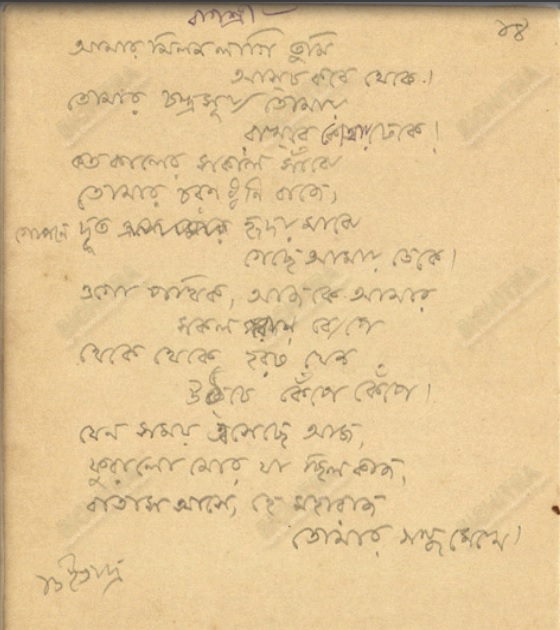 বাগেশ্রী
১৪
আমার মিলন লাগি তুমি
আসচ কবে থেকে।
তোমার চন্দ্রসূর্য্য তোমায়
রাখবে কোথায় ঢেকে।
কত কালের সকাল সাঁঝে
তোমার চরণ ধ্বনি বাজে,
গোপনে দূত হৃদয় মাঝে
গেছে আমায় ডেকে।
ওগো পথিক, আজকে আমার
সকল পরাণ ব্যেপে
থেকে থেকে হরষ যেন
উঠচে কেঁপে কেঁপে।
যেন সময় এসেছে আজ,
ফুরালো মোর যা ছিল কাজ,
বাতাস আসে, হে মহারাজ
তোমার গন্ধ মেখে।
১৬ই ভাদ্র